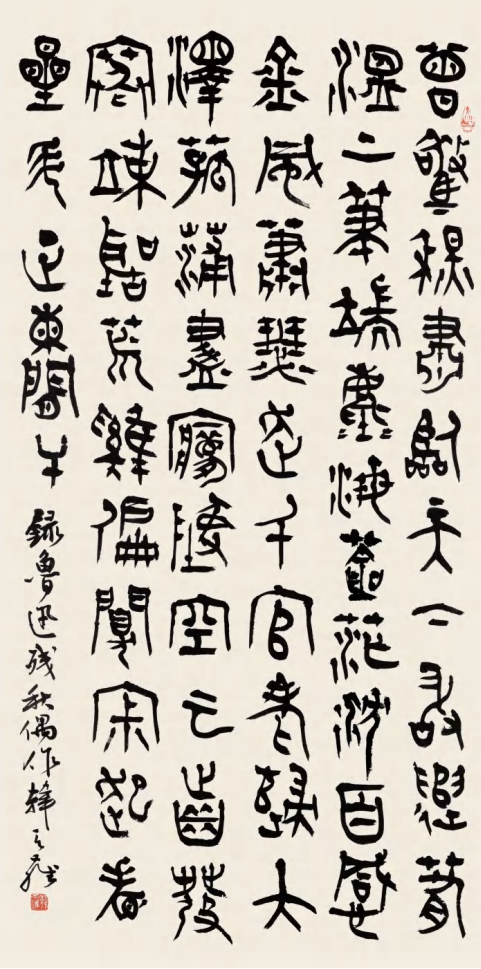 曾驚秋肅臨天下敢遣春
溫上筆端塵海蒼茫沈百感
金風蕭瑟走千官老歸大
澤菰蒲盡夢墜空雲齒髮
寒竦聽荒雞偏闃寂起看
星斗正闌干 錄魯迅殘秋偶作韓